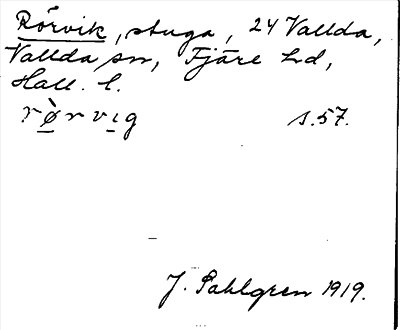 Rörvik, stuga, 24 Vallda,
Vallda sn, Fjäre hd,
Hall. l.
rø̀rvig s.57.
J. Sahlgren 1919.